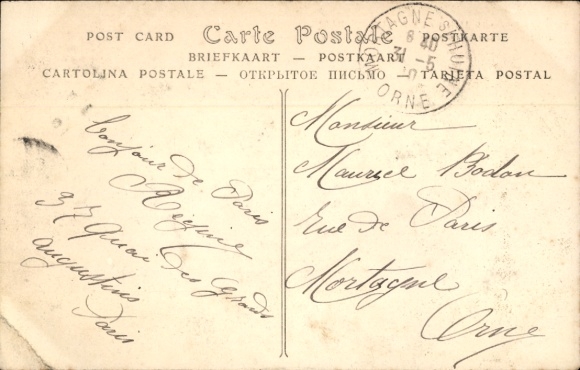 POST CARD Carte Postale POSTKARTE
BRIEFKAART — POSTKAART
CARTOLINA POSTALE — ОТКРЫТОЕ ПИСЬМО — TARJETA POSTAL
MORTAGNE S HUINE
8 40
31 -5
ORNE
Bonjour de Paris
Régine
37 Quai des Grands
augustins
Paris
Monsieur
Maurice Bodan
rue de Paris
Mortagne
Orne